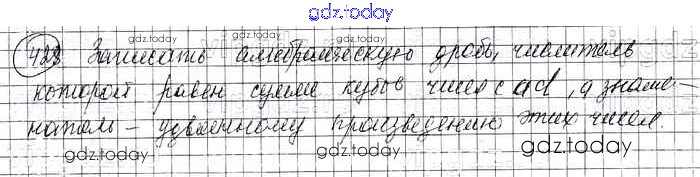 gdz.today
428 Записать алгебраическую дробь, числитель
которой равен сумме кубов чисел c и d, а знаме-
натель – удвоенному произведению этих чисел.
gdz.today gdz.today gdz.today